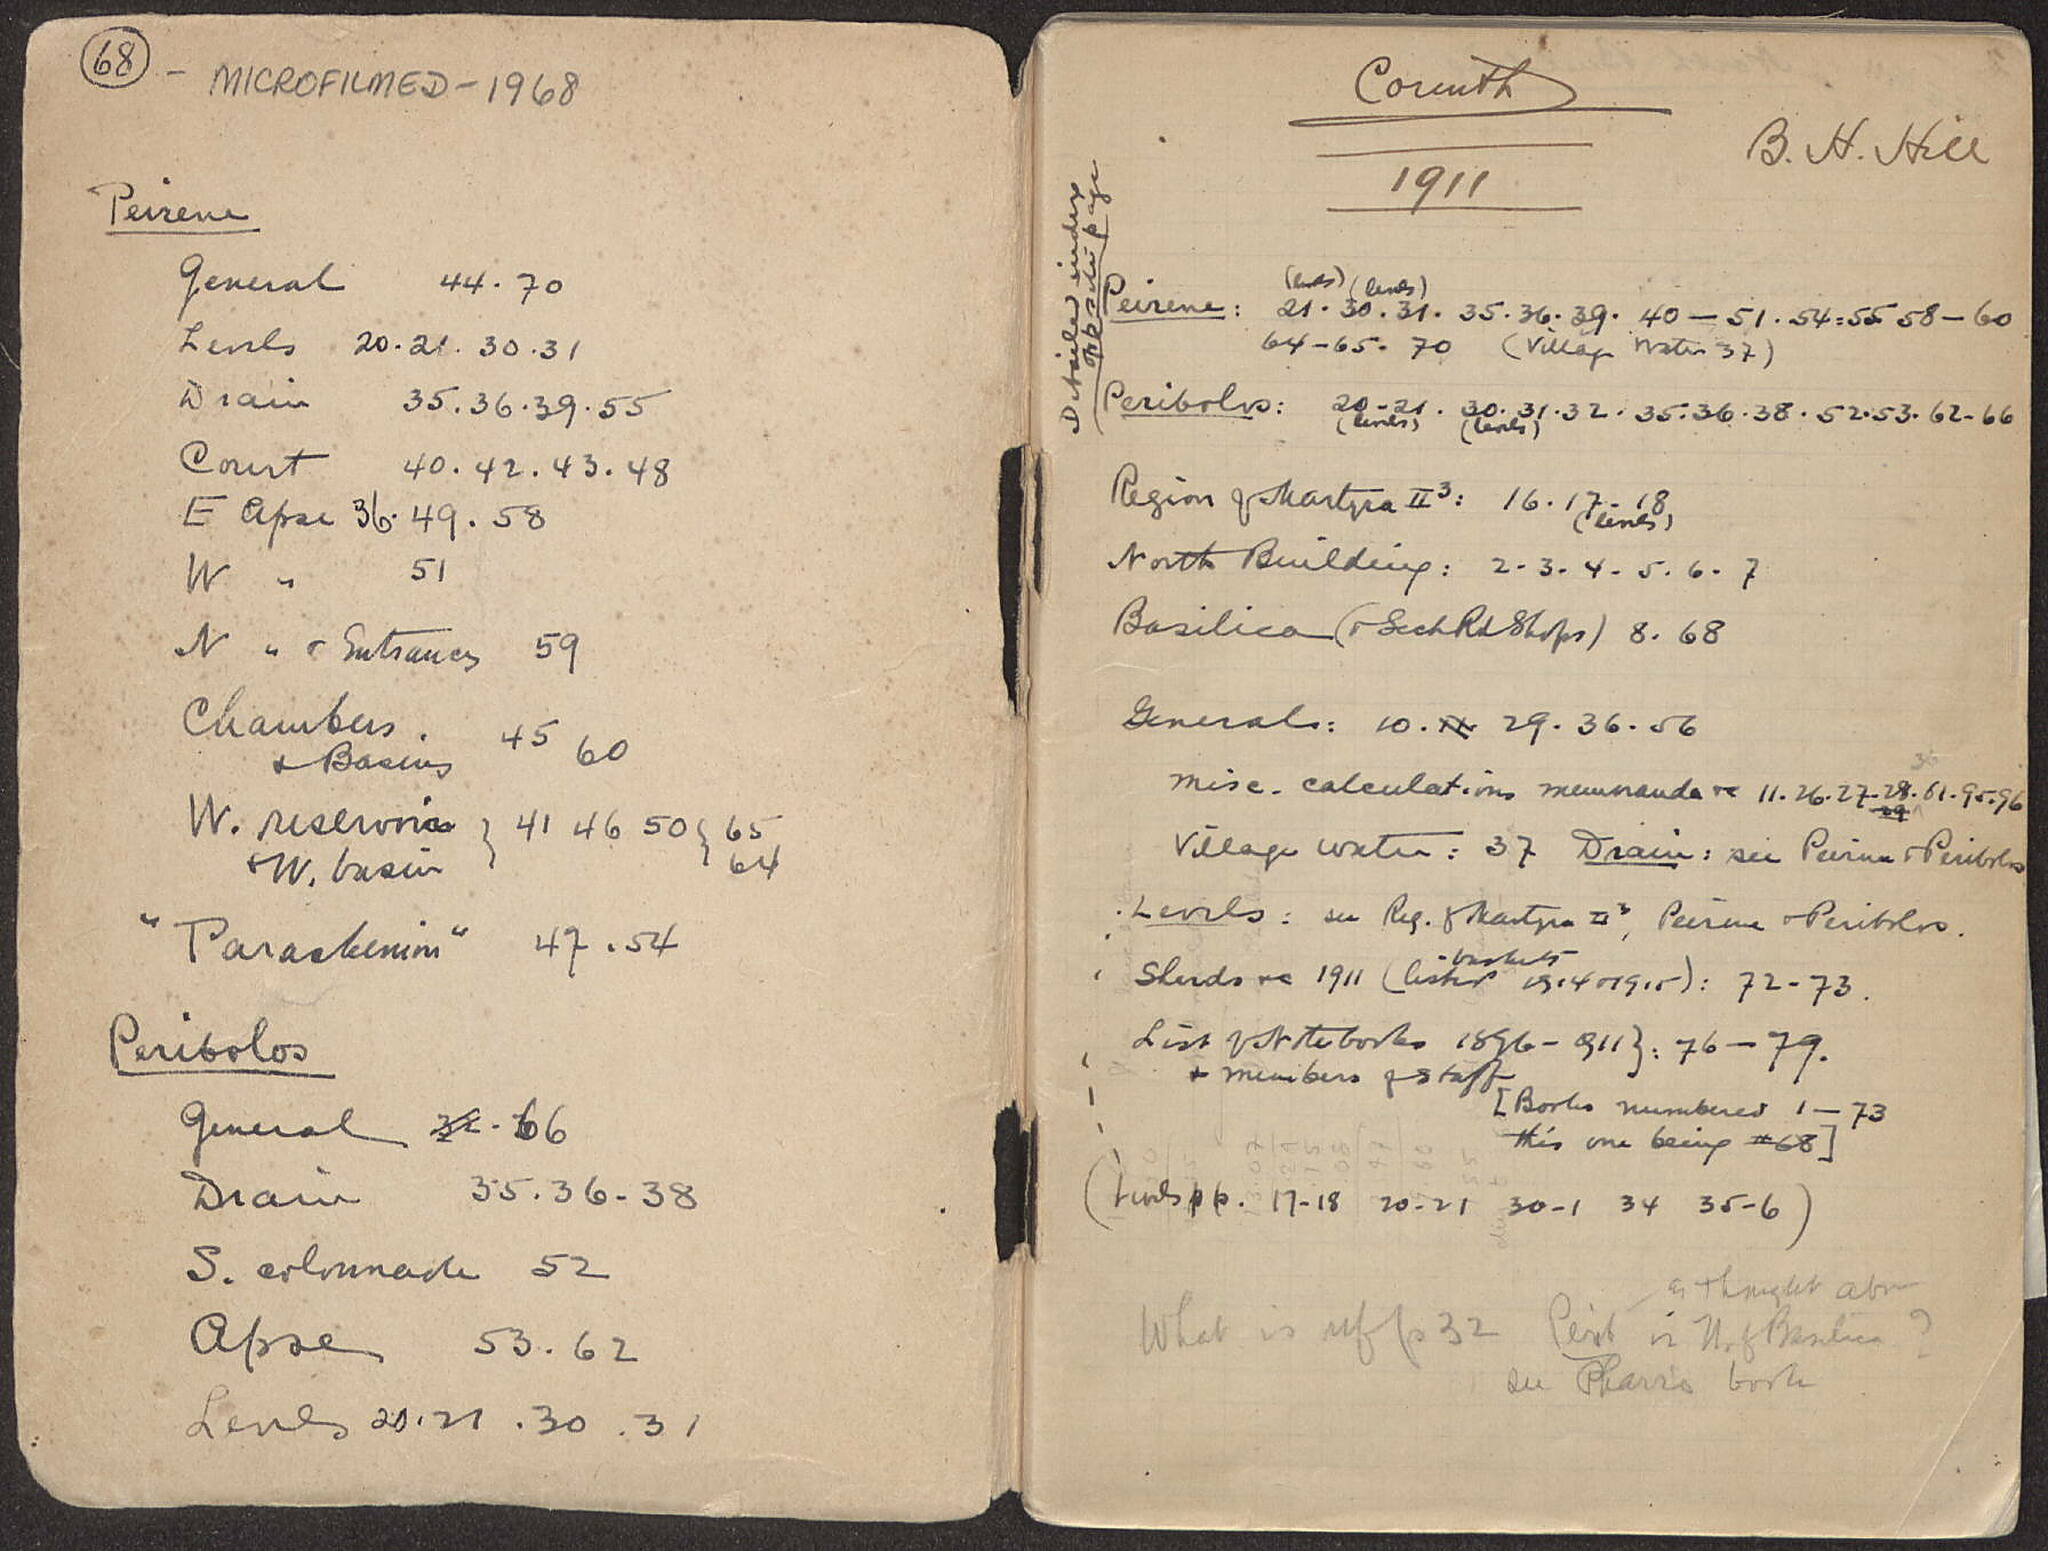 68 - MICROFILMED - 1968
Peirene
General 44. 70
Levels 20. 21. 30. 31
Drain 35. 36. 39. 55
Court 40. 42. 43. 48
E Apse 36. 49. 58
W " 51
N " & Entrances 59
Chambers.
& Basins 45 60
W. reservoir } 41 46 50 { 65
& W. basin 64
"Paraskenion" 47. 54
Peribolos
General 32. 66
Drain 35. 36 - 38
S. colonnade 52
Apse 53. 62
Levels 20. 21 . 30 . 31
Corinth
B. H. Hill
1911
Detailed index
opposite page
(levels) (levels)
Peirene: 21. 30. 31. 35. 36. 39. 40 — 51. 54-55 58 — 60
64 - 65. 70 (Village Water 37)
Peribolos: 20 - 21. 30. 31. 32. 35. 36. 38. 52. 53. 62 - 66
(levels) (levels)
Region of Martyra II³: 16. 17 - 18
(levels)
North Building: 2. 3. 4. 5. 6. 7
Basilica (& Lech Rd Shops) 8. 68
General: 10. 29. 36. 56
36
Misc. calculations memoranda etc 11. 26. 27. 28. 61. 95. 96
29
Village water: 37 Drain: see Peirene & Peribolos
Levels: see Reg. of Martyra II³, Peirene & Peribolos.
baskets
Sherds etc 1911 (listed 1914 & 1915): 72 - 73.
List of Notebooks 1896 - 911 }: 76 — 79.
& members of staff
[Books numbered 1 — 73
this one being #68]
(Levels pp. 17-18 20-21 30-1 34 35-6)
as thought above
What is ref p 32 Perib is N. of Basilica ?
see Pharr's book